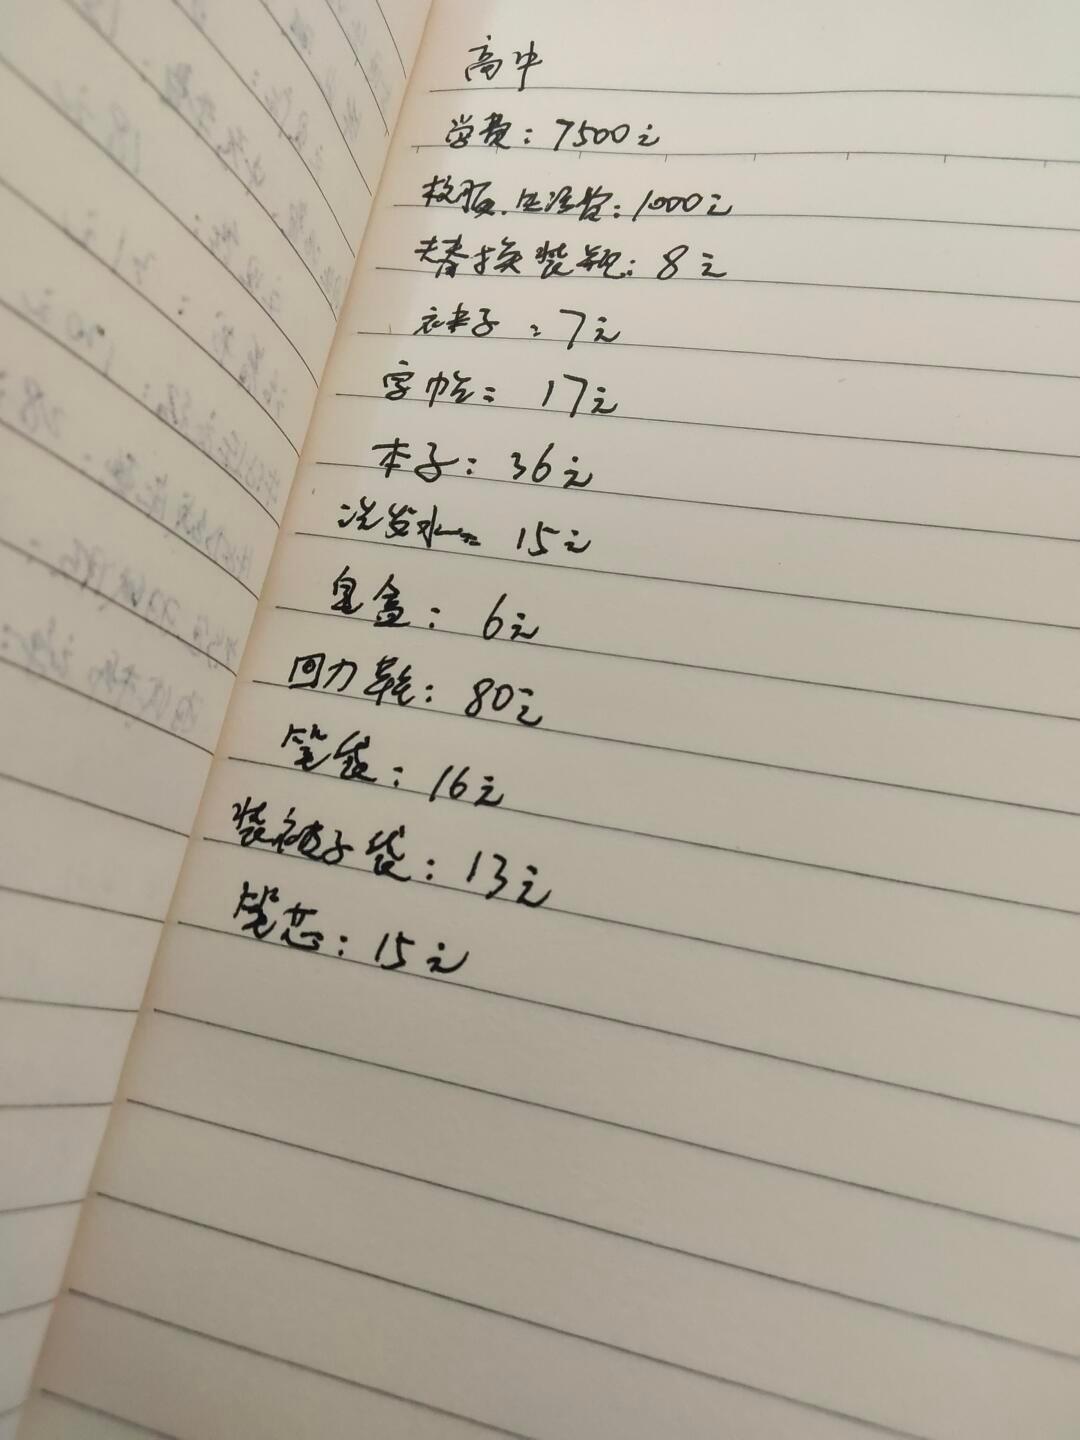 高中
学费：7500元
校服、生活费：1000元
替换装瓶：8元
衣夹子：7元
字帖：17元
本子：36元
洗发水：15元
皂盒：6元
回力鞋：80元
笔袋：16元
装被子袋：13元
笔芯：15元